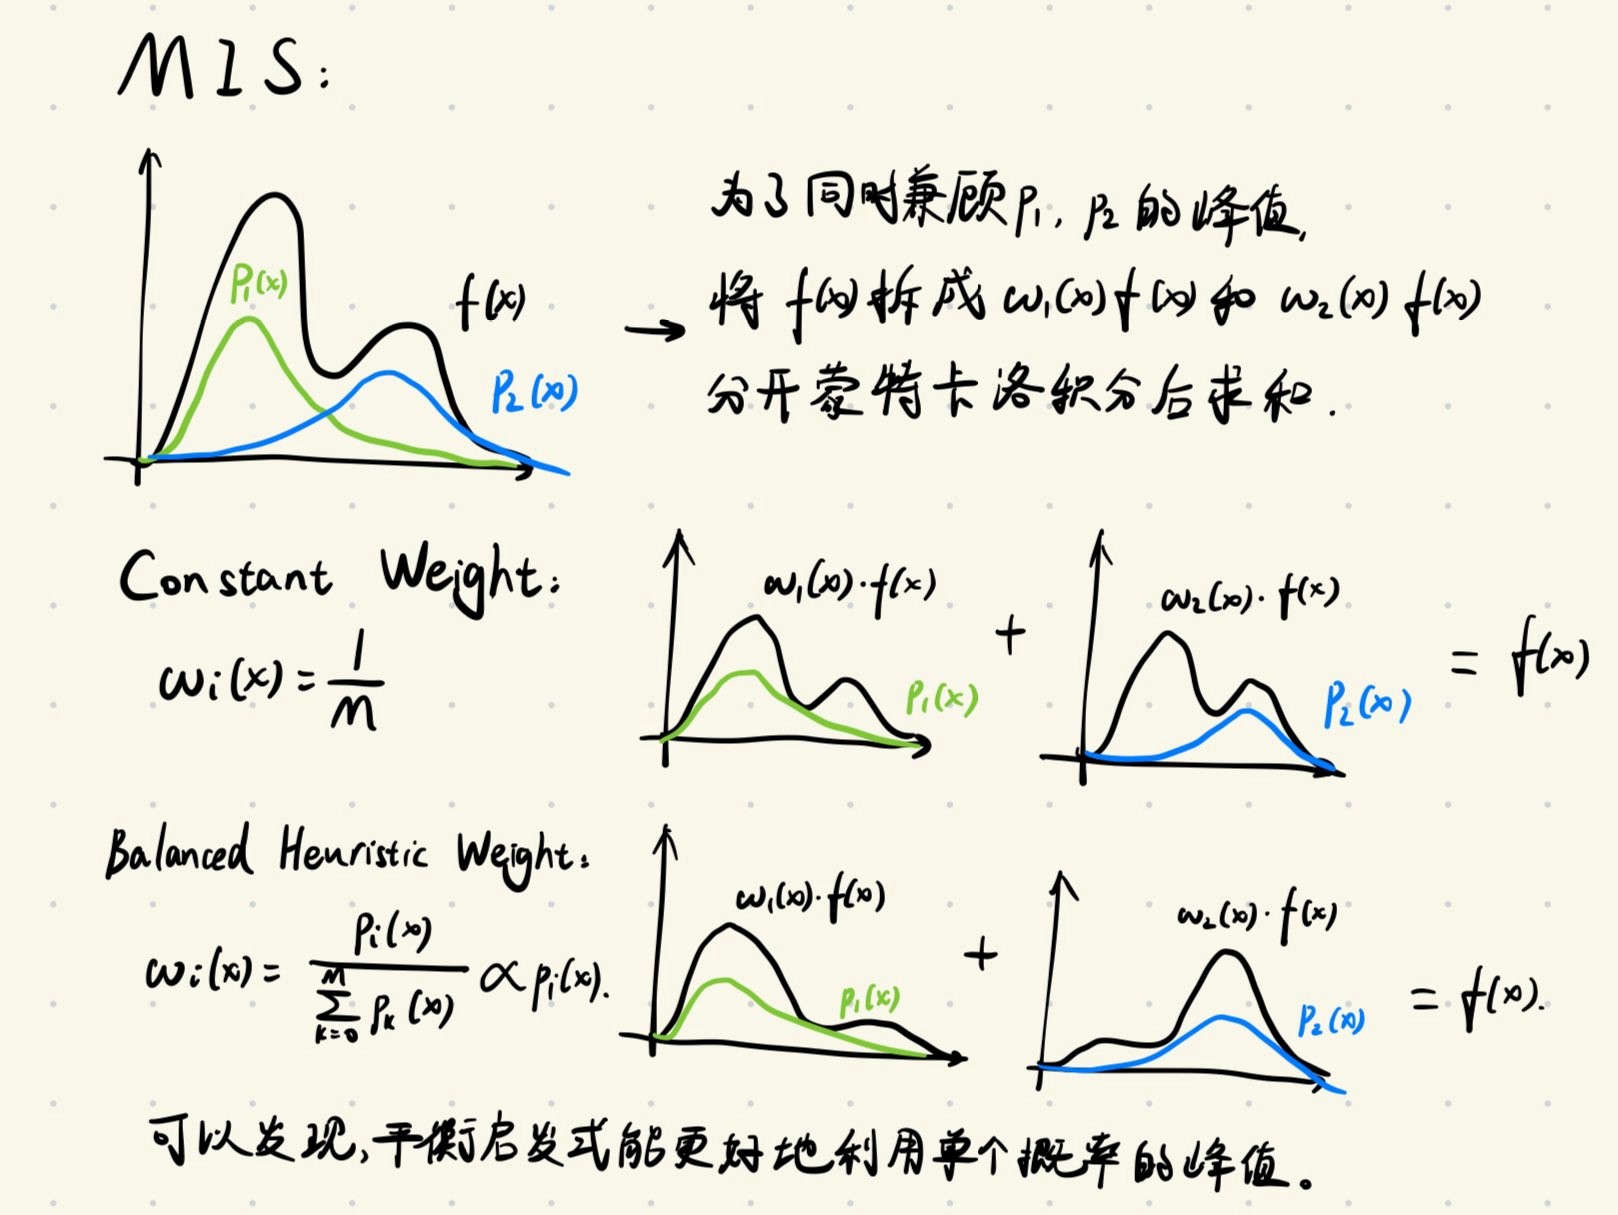 MIS:
P₁(x)
f(x)
P₂(x)
为了同时兼顾P₁, P₂的峰值,
→ 将 f(x)拆成 ω₁(x)f(x)和 ω₂(x)f(x)
分开蒙特卡洛积分后求和.
Constant Weight:
ωi(x) = 1/M
ω₁(x)·f(x)
P₁(x)
+
ω₂(x)·f(x)
P₂(x)
= f(x)
Balanced Heuristic Weight:
ωi(x) = Pi(x) / ∑_{k=0}^{M} Pk(x) ∝ Pi(x).
ω₁(x)·f(x)
P₁(x)
+
ω₂(x)·f(x)
P₂(x)
= f(x).
可以发现,平衡启发式能更好地利用单个概率的峰值。